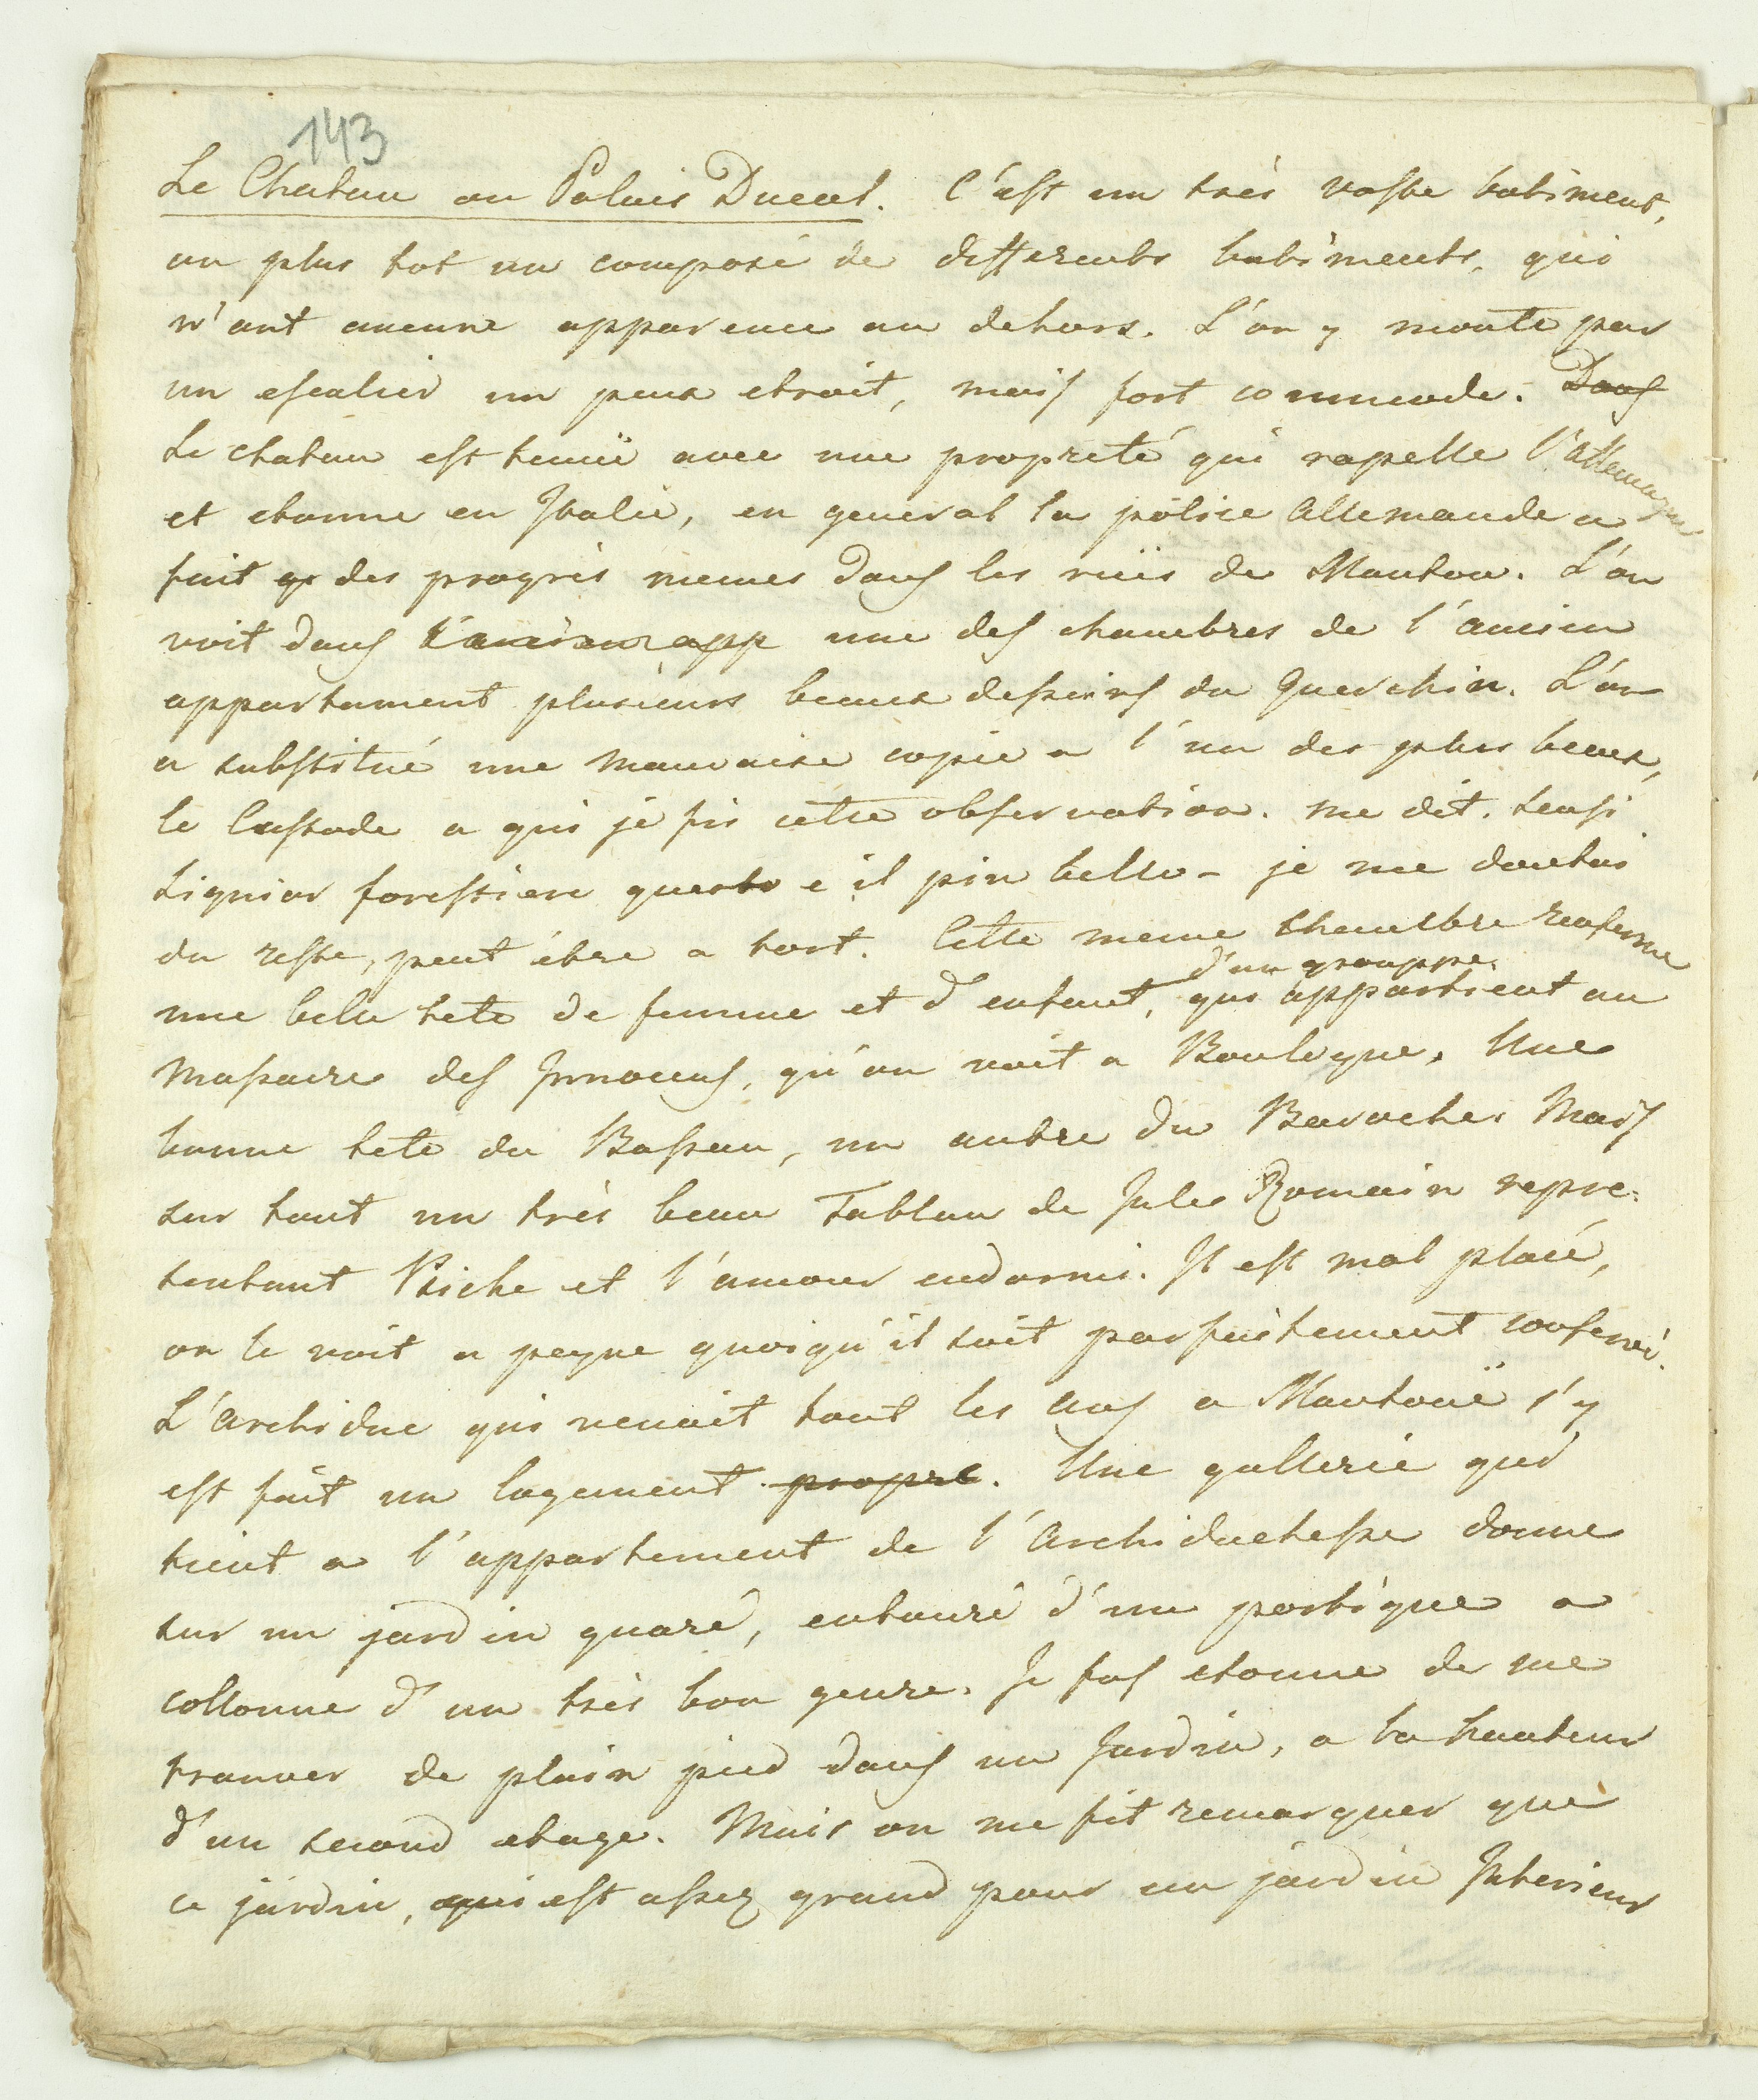 143
Le Chateau ou Palais Ducal. C'est un très vaste batiment,
ou plus tot un composé de differents batiments, qui
n'ont aucune apparence au dehors. L'on y monte par
un escalier un peux etroit, mais fort commode. Dans
Le chateau est tenuë avec une propreté qui rapelle l'Allemagne
et etonne en Italie, en general la police Allemande a
fait gr des progrès memes dans les ruës de Mantou. L'on
voit dans l'ancien app une des chambres de l'ancien
appartament plusieurs beaux desseins du Guerchin. L'on
a substitué une mauvaise copie a l'un des plus beaux,
le Custode a qui je fis cette observation. me dit. scusi
signior forestiere questo e il piu bello - je me doutai
du reste, peut être a tort. Cette meme chambre renferme
d'un grouppe.
une belle tete de femme et d'enfant, qui appartient au
Massacre des Innocens, qu'on voit a Boulogne. Une
bonne tete du Bassan, un autre du Baroche. Mais
sur tout un très beau Tableau de Jules Romain repre:
sentant Psiche et l'amour endormi. Il est mal placé,
on le voit a peyne quoiqu'il soit parfaitement conservé.
L'Archiduc qui venait tout les ans a Mantouë s'y
est fait un logement propre. Une gallerie qui
tient a l'appartement de l'Archiduchesse donne
sur un jardin quaré, entouré d'un portique a
collonne d'un très bon genre. Je fus etonne de me
trouver de plain pied dans un Jardin, a la hauteur
d'un second etage. Mais on me fit remarquer que
ce jardin, qui est assez grand pour un jardin Interieur